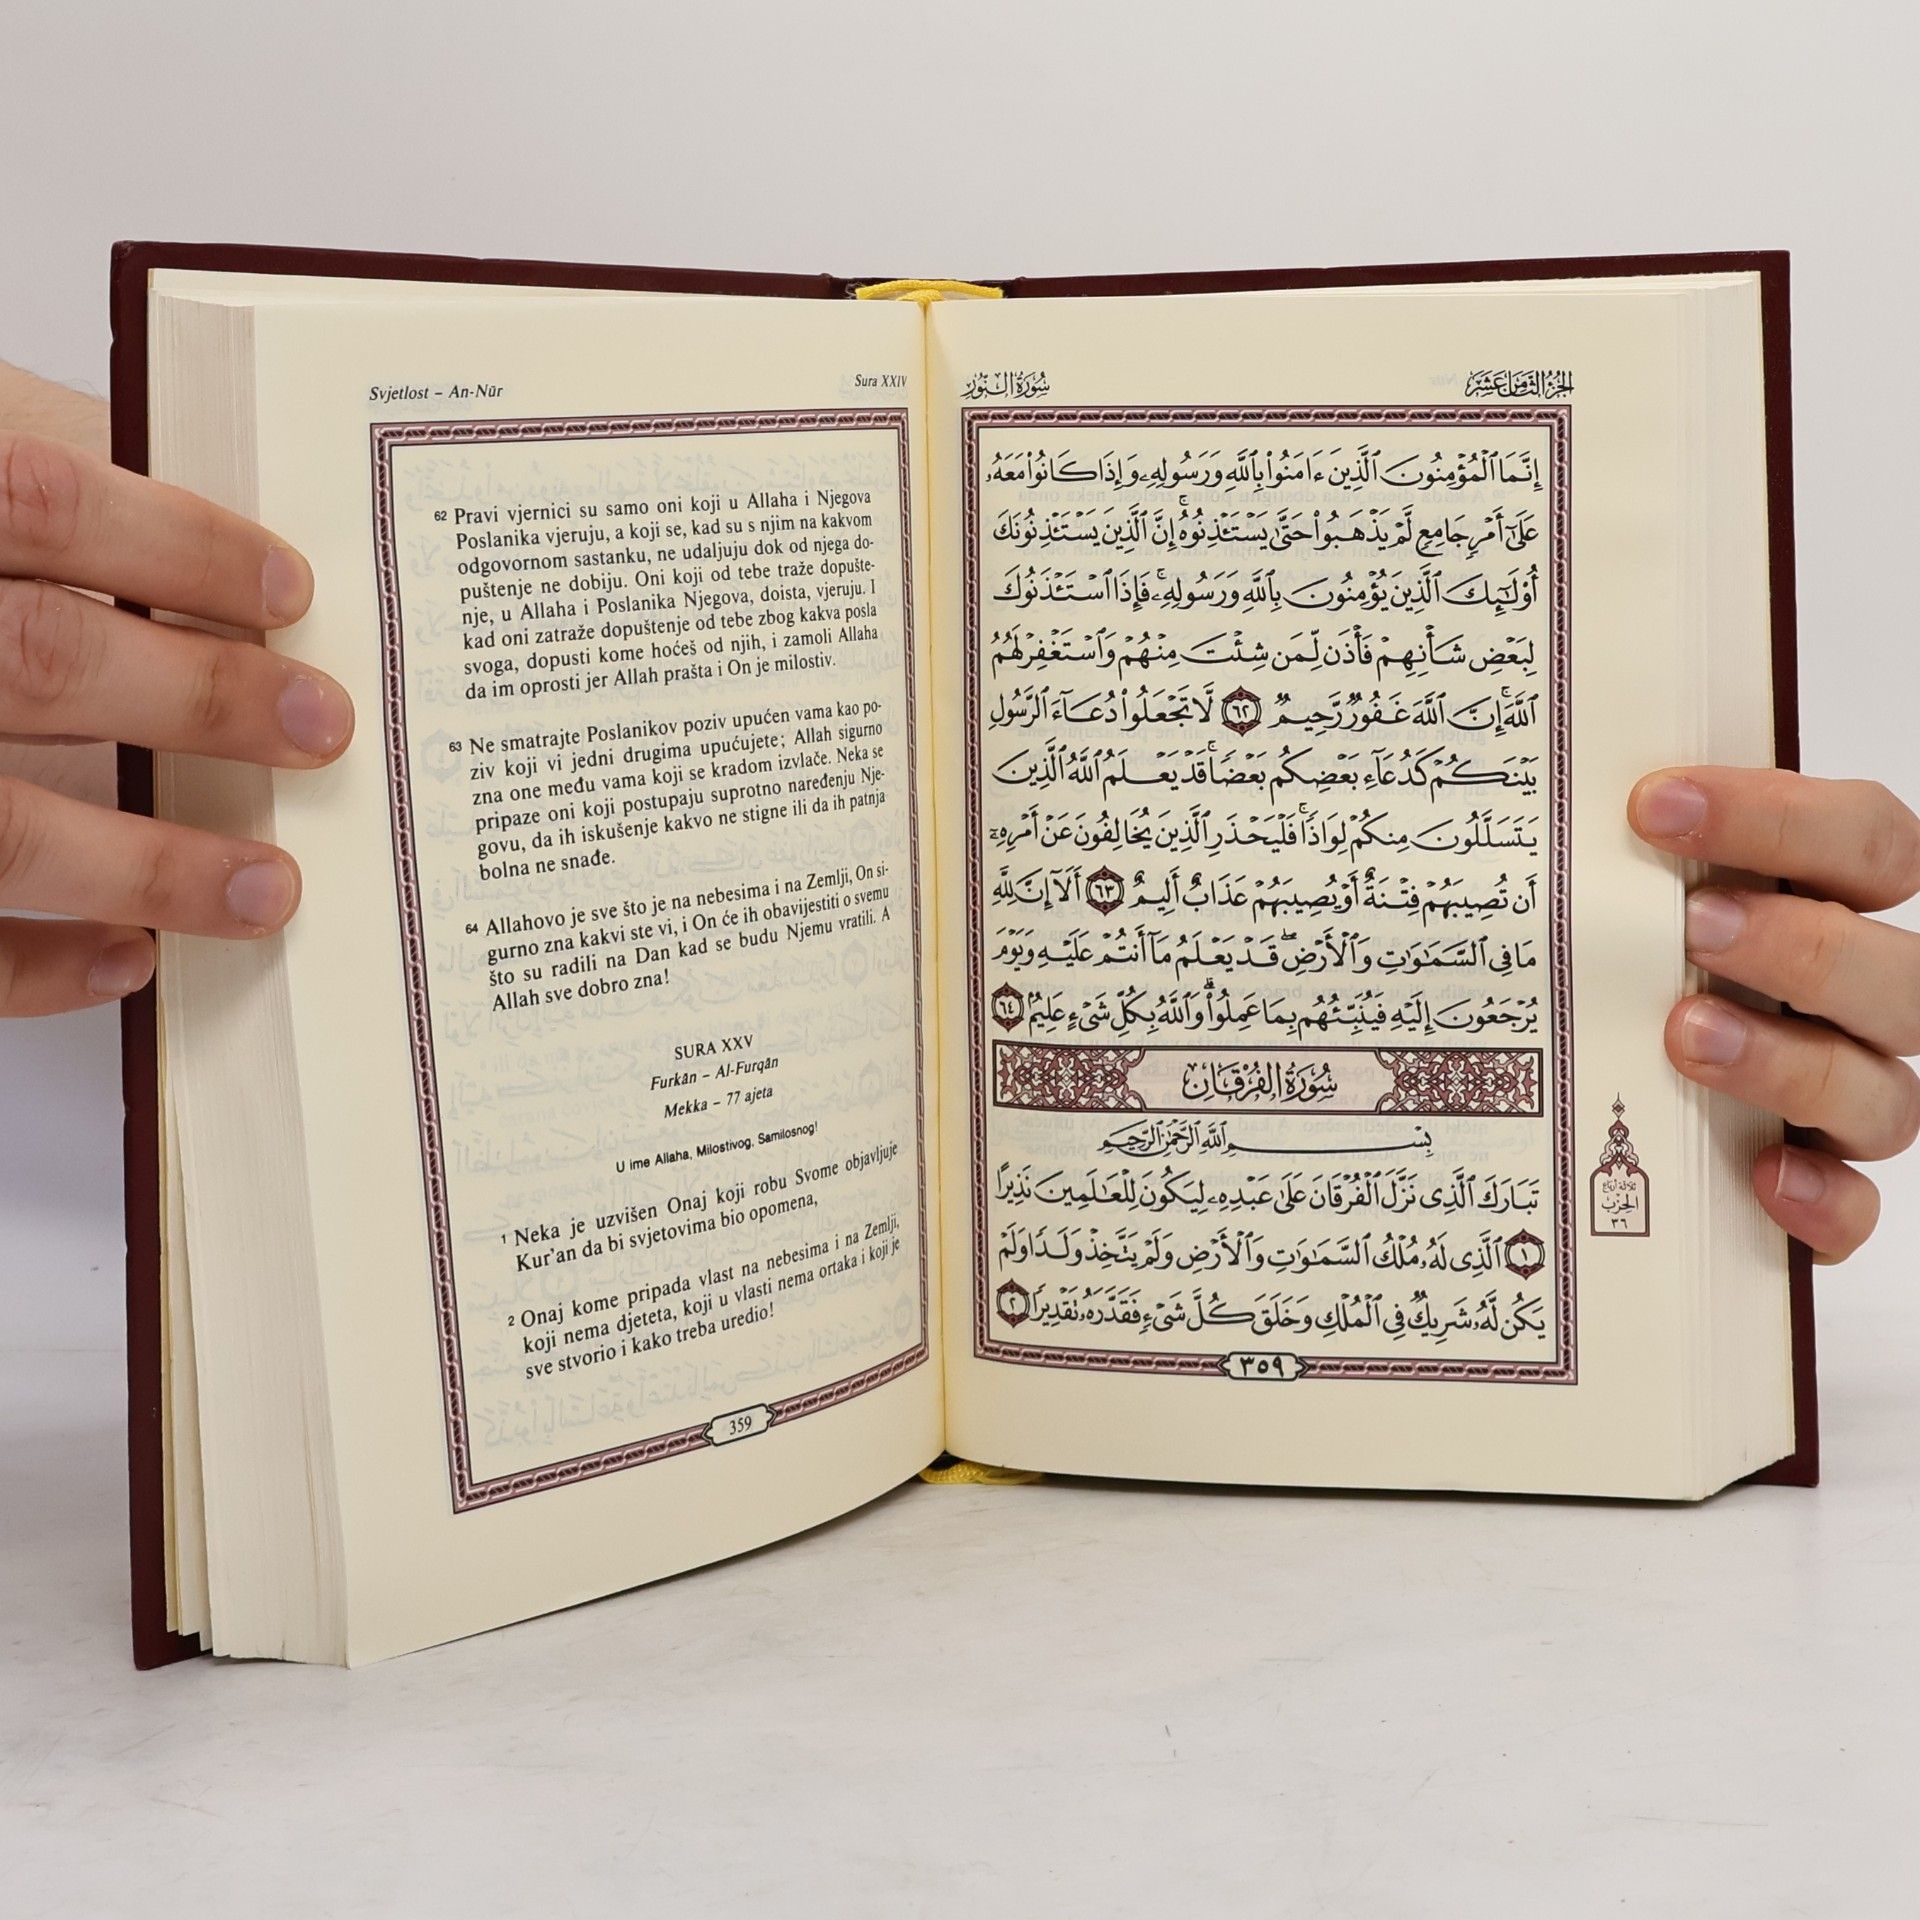 Svjetlost – An-Nūr
Sura XXIV
62 Pravi vjernici su samo oni koji u Allaha i Njegova
Poslanika vjeruju, a koji se, kad su s njim na kakvom
odgovornom sastanku, ne udaljuju dok od njega do-
puštenje ne dobiju. Oni koji od tebe traže dopušte-
nje, u Allaha i Poslanika Njegova, doista, vjeruju. I
kad oni zatraže dopuštenje od tebe zbog kakva posla
svoga, dopusti kome hoćeš od njih, i zamoli Allaha
da im oprosti jer Allah prašta i On je milostiv.
63 Ne smatrajte Poslanikov poziv upućen vama kao po-
ziv koji vi jedni drugima upućujete; Allah sigurno
zna one među vama koji se kradom izvlače. Neka se
pripaze oni koji postupaju suprotno naređenju Nje-
govu, da ih iskušenje kakvo ne stigne ili da ih patnja
bolna ne snađe.
64 Allahovo je sve što je na nebesima i na Zemlji, On si-
gurno zna kakvi ste vi, i On će ih obavijestiti o svemu
što su radili na Dan kad se budu Njemu vratili. A
Allah sve dobro zna!
SURA XXV
Furkān – Al-Furqān
Mekka – 77 ajeta
U ime Allaha, Milostivog, Samilosnog!
1 Neka je uzvišen Onaj koji robu Svome objavljuje
Kur'an da bi svjetovima bio opomena,
2 Onaj kome pripada vlast na nebesima i na Zemlji,
koji nema djeteta, koji u vlasti nema ortaka i koji je
sve stvorio i kako treba uredio!
359
الجزء الثامن عشر
سورة النور
إِنَّمَا ٱلْمُؤْمِنُونَ ٱلَّذِينَ ءَامَنُوا۟ بِٱللَّهِ وَرَسُولِهِۦ وَإِذَا كَانُوا۟ مَعَهُۥ
عَلَىٰٓ أَمْرٍ جَامِعٍ لَّمْ يَذْهَبُوا۟ حَتَّىٰ يَسْتَـْٔذِنُوهُ ۚ إِنَّ ٱلَّذِينَ يَسْتَـْٔذِنُونَكَ
أُو۟لَـٰٓئِكَ ٱلَّذِينَ يُؤْمِنُونَ بِٱللَّهِ وَرَسُولِهِۦ ۚ فَإِذَا ٱسْتَـْٔذَنُوكَ
لِبَعْضِ شَأْنِهِمْ فَأْذَن لِّمَن شِئْتَ مِنْهُمْ وَٱسْتَغْفِرْ لَهُمُ
ٱللَّهَ ۚ إِنَّ ٱللَّهَ غَفُورٌ رَّحِيمٌ ٦٢ لَّا تَجْعَلُوا۟ دُعَآءَ ٱلرَّسُولِ
بَيْنَكُمْ كَدُعَآءِ بَعْضِكُم بَعْضًا ۚ قَدْ يَعْلَمُ ٱللَّهُ ٱلَّذِينَ
يَتَسَلَّلُونَ مِنكُمْ لِوَاذًا ۚ فَلْيَحْذَرِ ٱلَّذِينَ يُخَالِفُونَ عَنْ أَمْرِهِۦٓ
أَن تُصِيبَهُمْ فِتْنَةٌ أَوْ يُصِيبَهُمْ عَذَابٌ أَلِيمٌ ٦٣ أَلَآ إِنَّ لِلَّهِ
مَا فِى ٱلسَّمَـٰوَٰتِ وَٱلْأَرْضِ ۖ قَدْ يَعْلَمُ مَآ أَنتُمْ عَلَيْهِ وَيَوْمَ
يُرْجَعُونَ إِلَيْهِ فَيُنَبِّئُهُم بِمَا عَمِلُوا۟ ۗ وَٱللَّهُ بِكُلِّ شَىْءٍ عَلِيمٌۢ ٦٤
سُورَةُ الفُرْقَانِ
بِسْمِ ٱللَّهِ ٱلرَّحْمَـٰنِ ٱلرَّحِيمِ
تَبَارَكَ ٱلَّذِى نَزَّلَ ٱلْفُرْقَانَ عَلَىٰ عَبْدِهِۦ لِيَكُونَ لِلْعَـٰلَمِينَ نَذِيرًا
١ ٱلَّذِى لَهُۥ مُلْكُ ٱلسَّمَـٰوَٰتِ وَٱلْأَرْضِ وَلَمْ يَتَّخِذْ وَلَدًا وَلَمْ
يَكُن لَّهُۥ شَرِيكٌ فِى ٱلْمُلْكِ وَخَلَقَ كُلَّ شَىْءٍ فَقَدَّرَهُۥ تَقْدِيرًا ٢
٣٥٩
ثلاثة أرباع
الحزب
٣٦